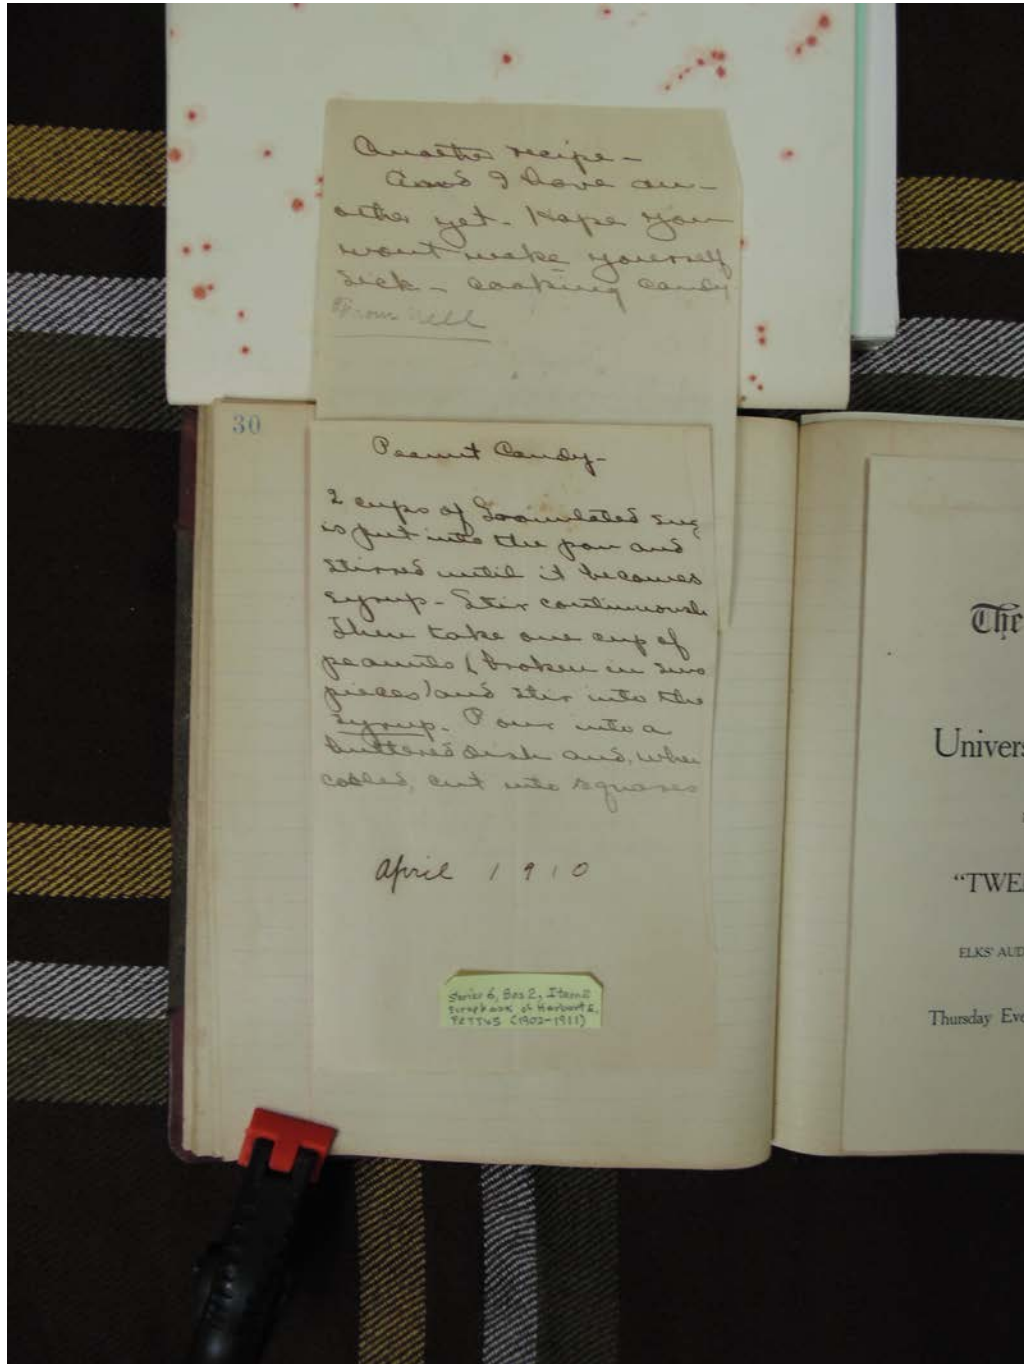 Another recipe -
And I have an-
other yet. Hope you
wont make yourself
sick - cooking candy
From Nell
30
Peanut Candy -
2 cups of Granulated sug
is put into the pan and
stirred until it becomes
syrup - Stir continuously
Then take one cup of
peanuts (broken in two
pieces) and stir into the
syrup. Pour into a
buttered dish and, when
cooled, cut into squares
April 1910
Series 6, Box 2, Item 2
Scrapbook of Herbert E.
PETTUS (1902-1911)
The
Univers
"TWE
ELKS' AUD
Thursday Eve